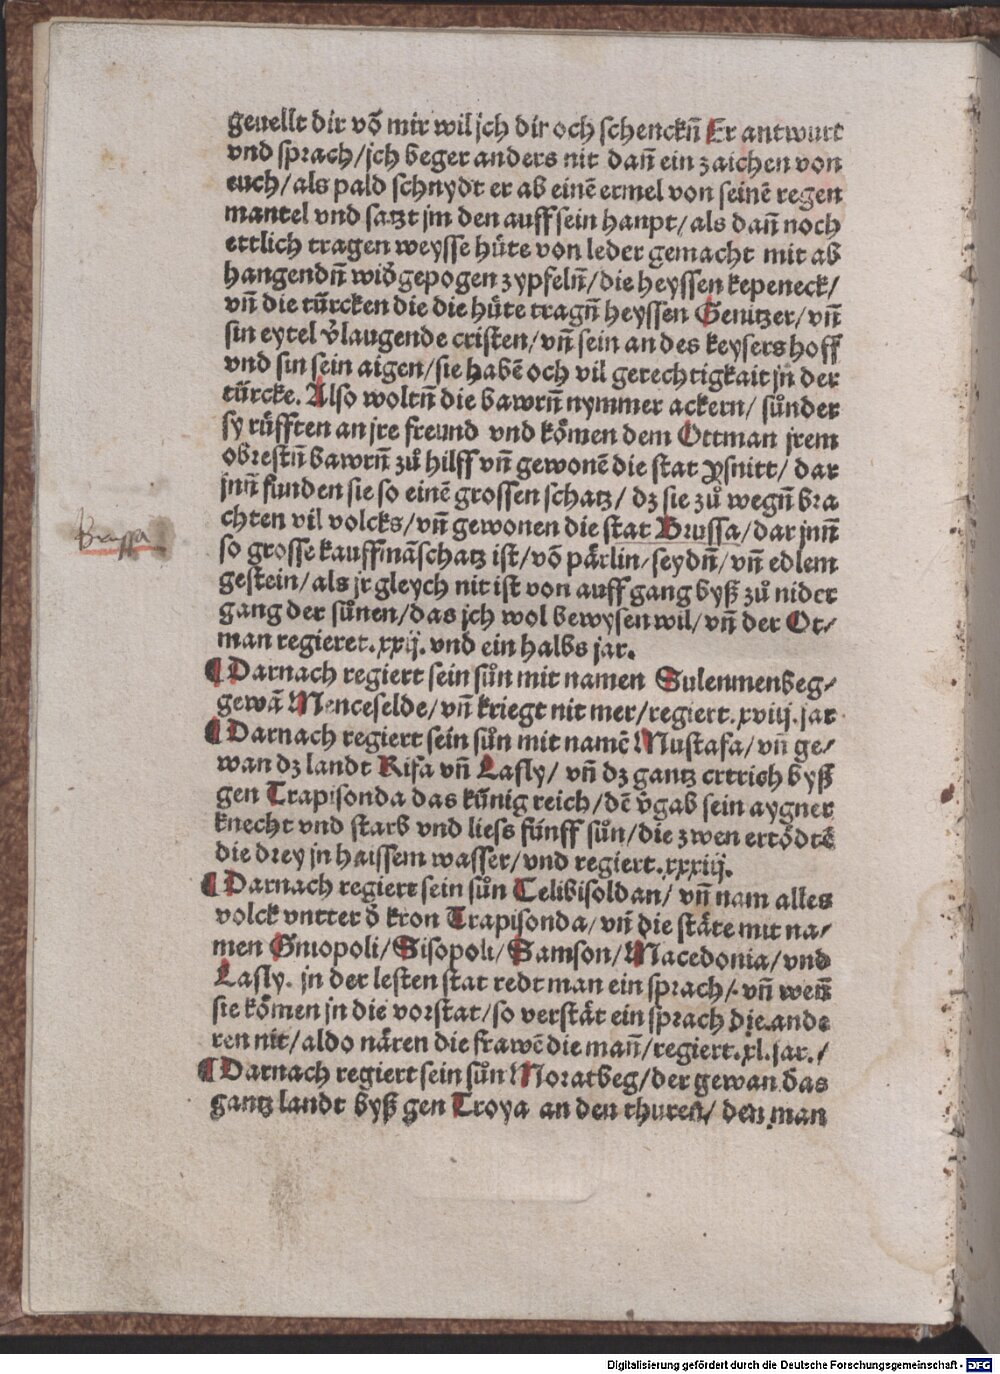 geuellt dir võ mir wil jch dir och schenckñ Er antwurt
vnd sprach/jch beger anders nit dañ ein zaichen von
euch/als pald schnydt er ab einē ermel von seinē regen
mantel vnd satzt jm den auff sein haupt/als dañ noch
ettlich tragen weysse hüte von leder gemacht mit ab
hangendñ widgepogen zypfelñ/die heyssen kepeneck/
vñ die türcken die die hüte tragñ heyssen Genitzer/vñ
sin eytel v̓laugende cristen/vñ sein an des keysers hoff
vnd sin sein aigen/sie habē och vil gerechtigkait jn der
türcke. Also woltñ die bawrñ nymmer ackern/ sůnder
sy rüfften an jre freund vnd kömen dem Ottman jrem
obrestñ bawrñ zů hilff vñ gewonē die stat Prsnitt/ dar
jnñ funden sie so einē grossen schatz/ dz sie zů wegñ bra
chten vil volcks/vñ gewonen die stat Brussa/dar jnñ
Brussa
so grosse kauffmãschatz ist/võ pärlin/seydñ/vñ edlem
gestein/als jr gleych nit ist von auffgang byß zů nider
gang der sůnen/das jch wol bewysen wil/vñ der Ot/
man regieret.xxij.vnd ein halbs jar.
¶Darnach regiert sein sůn mit namen Sulenmenbeg/
gewã Menceselde/vñ kriegt nit mer/regiert.xviij.jar
¶Darnach regiert sein sůn mit namē Mustafa/vñ ge/
wan dz landt Risa vñ Lasly/ vñ dz gantz ertrich byß
gen Trapisonda das künig reich/dē v̓gab sein aygner
knecht vnd starb vnd liess fünff sůn/die zwen ertödtē
die drey jn haissem wasser/vnd regiert.xxxiij.
¶Darnach regiert sein sůn Celibisoldan/ vñ nam alles
volck vntter d̓ kron Trapisonda/vñ die stäte mit na/
men Gniopoli/Sisopoli/Samson/Macedonia/vnd
Lasly. jn der lesten stat redt man ein sprach/ vñ weñ
sie kömen jn die vorstat/so verstät ein sprach die ande
ren nit/aldo nären die frawē die mañ/regiert.xl.jar./
¶Darnach regiert sein sůn Moratbeg/der gewan das
gantz landt byß gen Troya an den thuren/ den man
Digitalisierung gefördert durch die Deutsche Forschungsgemeinschaft - DFG